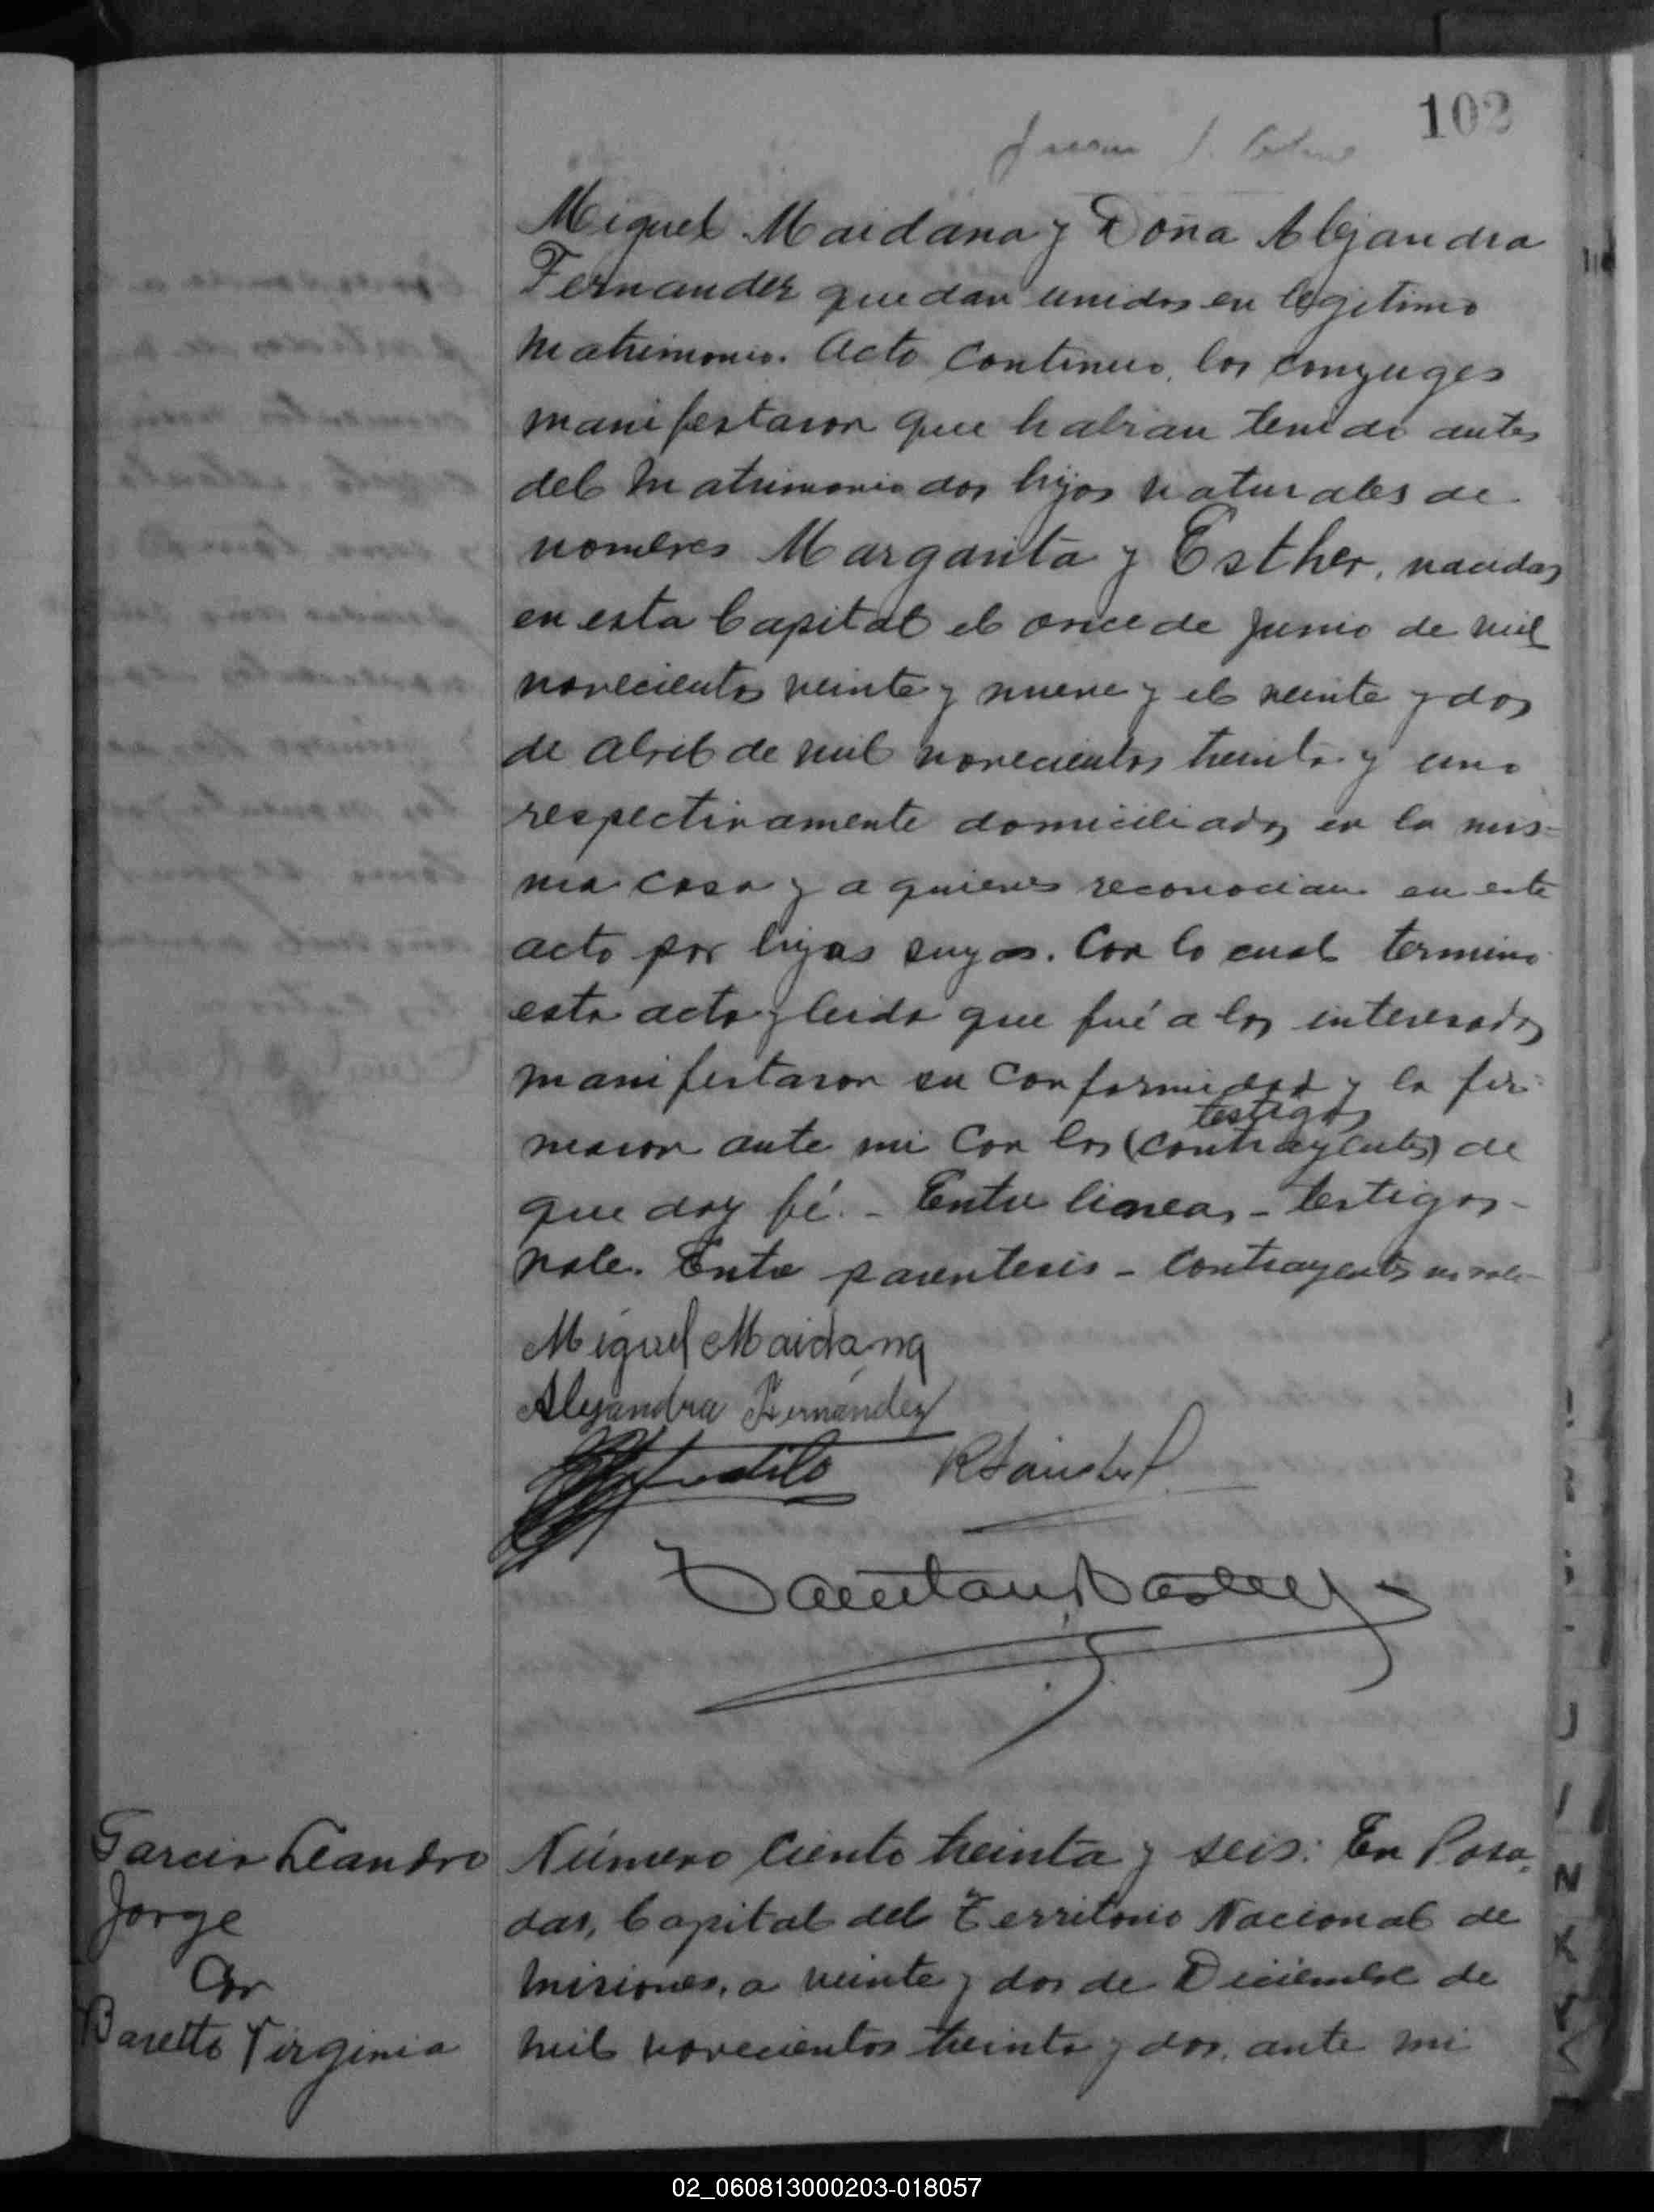 102
Juan
Miguel Maidana y Doña Alejandra
Fernandez quedan unidos en legitimo
matrimonio. Acto continuo, los conyuges
manifestaron que habian tenido antes
del matrimonio dos hijos naturales de
nombres Margarita y Esther, nacidas
en esta Capital el once de Junio de mil
novecientos veinte y nueve y el veinte y dos
de Abril de mil novecientos treinta y uno
respectivamente domiciliados en la mis-
ma casa y a quienes reconocian en este
acto por hijas suyas. Con lo cual termino
esta acta y leida que fué a los interesados
manifestaron su conformidad y la fir-
testigos
maron ante mi con los (contrayentes) de
que doy fé. - Entre lineas - testigos -
vale. Entre parentesis - Contrayentes no vale
Miguel Maidana
Alejandra Fernández
Garcia Leandro
Jorge
Con
Baretto Virginia
Número ciento treinta y seis: En Posa-
das, Capital del Territorio Nacional de
Misiones, a veinte y dos de Diciembre de
mil novecientos treinta y dos, ante mi
02_060813000203-018057